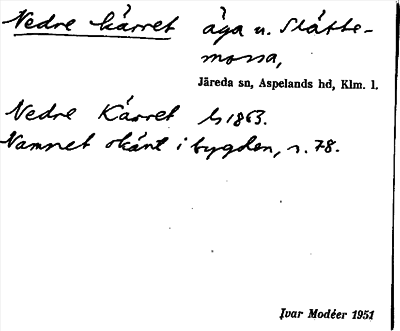 Nedre kärret äga u. Slätte-
mossa,
Järeda sn, Aspelands hd, Klm. l.
Nedre Kärret Ls 1863.
Namnet okänt i bygden, s. 78.
Ivar Modéer 1951